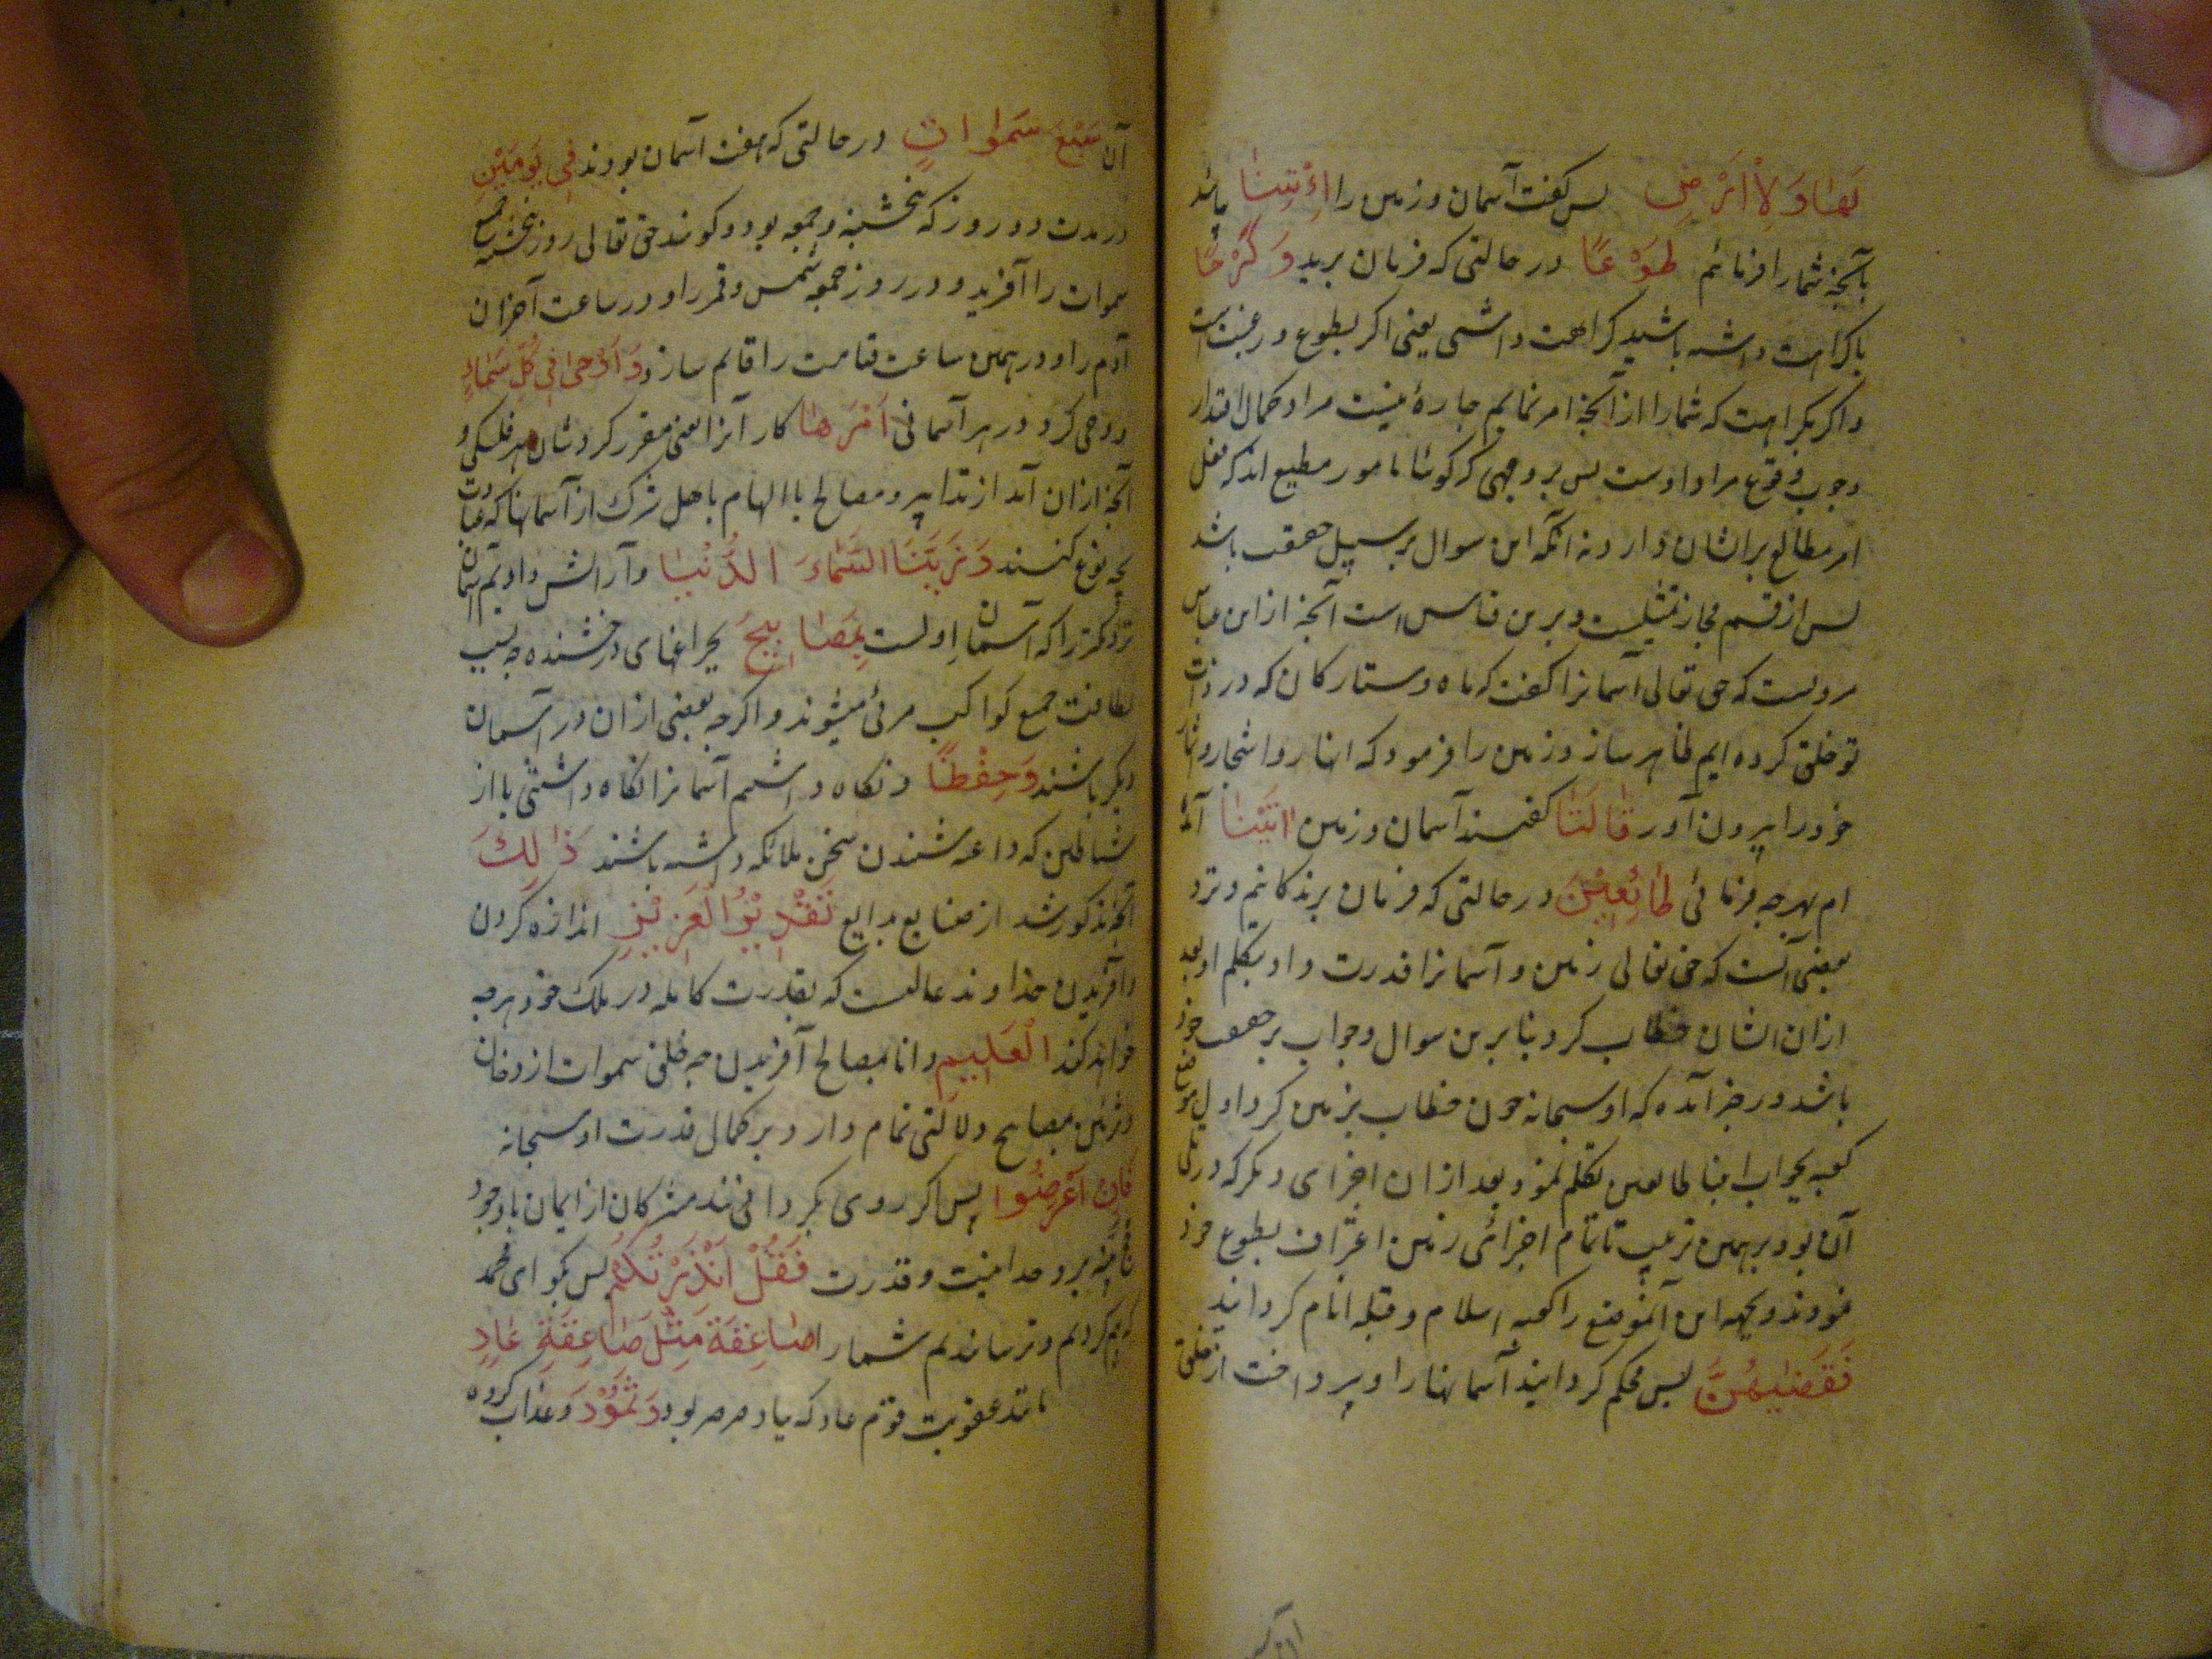 لَهَا وَلِلْأَرْضِ پس گفت آسمان و زمین را ائْتِیَا بیائید
بآنچه شما را فرمائم طَوْعًا در حالتی که فرمان برید وَكَرْهًا
یا کراهت داشته باشید کراهت داشتنی یعنی اکر بطوع و رغبت است
و اکر بکراهت که شما را از آنچه امر نمایم چارهٔ نیست مراد کمال اقتدار
وجوب وقوع مراد اوست پس بر وجهی که کوئیا مامور مطیع اند که فعل
امر مطاع بر ایشان دارد نه آنکه این سوال بر سبیل حقیقت باشد
پس از قسم مجاز تمثیلیست و برین قیاس است آنچه از ابن عباس
مرویست که حق تعالی آسمانرا کفت که ماه و ستارکان که در ذات
تو خلق کرده ایم ظاهر ساز و زمین را فرمود که انهار و اشجار و ثمار
خود را بیرون آور قَالَتَا کفتند آسمان و زمین أَتَيْنَا آمده
ایم بهرچه فرمائی طَائِعِينَ در حالتی که فرمان برندکانیم و نزد
بعضی آنست که حق تعالی زمین و آسمانرا قدرت داد بتکلم او بعد
ازان ایشان خطاب کرد بنا برین سوال و جواب بر حقیقت خود
باشد در خبر آمده که او سبحانه چون خطاب بزمین کرد اول موضع
کعبه بجواب اتینا طائعین تکلم نمود بعد از ان اجزای دیکر که در تلی
آن بود بهمین ترتیب تا تمام اجزائی زمین اعتراف بطوع خود
نمودند و بجهه این آنموضع را کعبه اسلام و قبله انام کردانید
فَقَضَاهُنَّ پس محکم کردانید آسمانها را و پرداخت از خلق
آن سَبْعَ سَمٰوَاتٍ در حالتی که هفت آسمان بودند فِي يَوْمَيْنِ
در مدت دو روز که پنجشنبه و جمعه بود و کویند حق تعالی روز پنجشنبه جمیع
سموات را آفرید و در روز جمعه شمس و قمر را و در ساعت آخر ان
آدم را و در همین ساعت قیامت را قائم سازد وَأَوْحَىٰ فِي كُلِّ سَمَاءٍ
و وحی کرد در هر آسمانی أَمْرَهَا کار آنرا یعنی مقرر کرد شان هر فلکی و
آنچه ازان آید از تدابیر و مصالح یا الهام باهل ترک از آسمانها که عبادت
بچه نوع کنند وَزَيَّنَّا السَّمَاءَ الدُّنْيَا و آرایش دادیم آسمان
نزدیکتر را که آسمان اولست بِمَصَابِيحَ بچراغهای درخشنده چه بسبب
لطافت جمیع کواکب مرئی میشوند و اکرچه بعضی ازان در آسمان
دیکر باشند وَحِفْظًا و نکاه داشتیم آسمانرا نکاه داشتنی یا از
شیاطین که داعیه شنیدن سخن ملائکه داشته باشند ذَٰلِكَ
آنچه مذکور شد از صنایع بدایع تَقْدِيرُ الْعَزِيزِ اندازه کردن
و آفریدن خداوند غالبست که بقدرت کامله در ملک خود هرچه
خواهد کند الْعَلِيمِ دانا بمصالح آفریدن چه خلق سموات از دخان
و تزئین بمصابیح دلالتی تمام دارد بر کمال قدرت او سبحانه
فَإِنْ أَعْرَضُوا پس اکر روی بکردانند مشرکان از ایمان با وجود
بر وحدانیت و قدرت فَقُلْ أَنْذَرْتُكُمْ پس بکو ای محمد
کردم و ترسانیدم شما را صَاعِقَةً مِثْلَ صَاعِقَةِ عَادٍ
مانند عقوبت قوم عاد که باد صرصر بود وَثَمُودَ و عذاب کروه